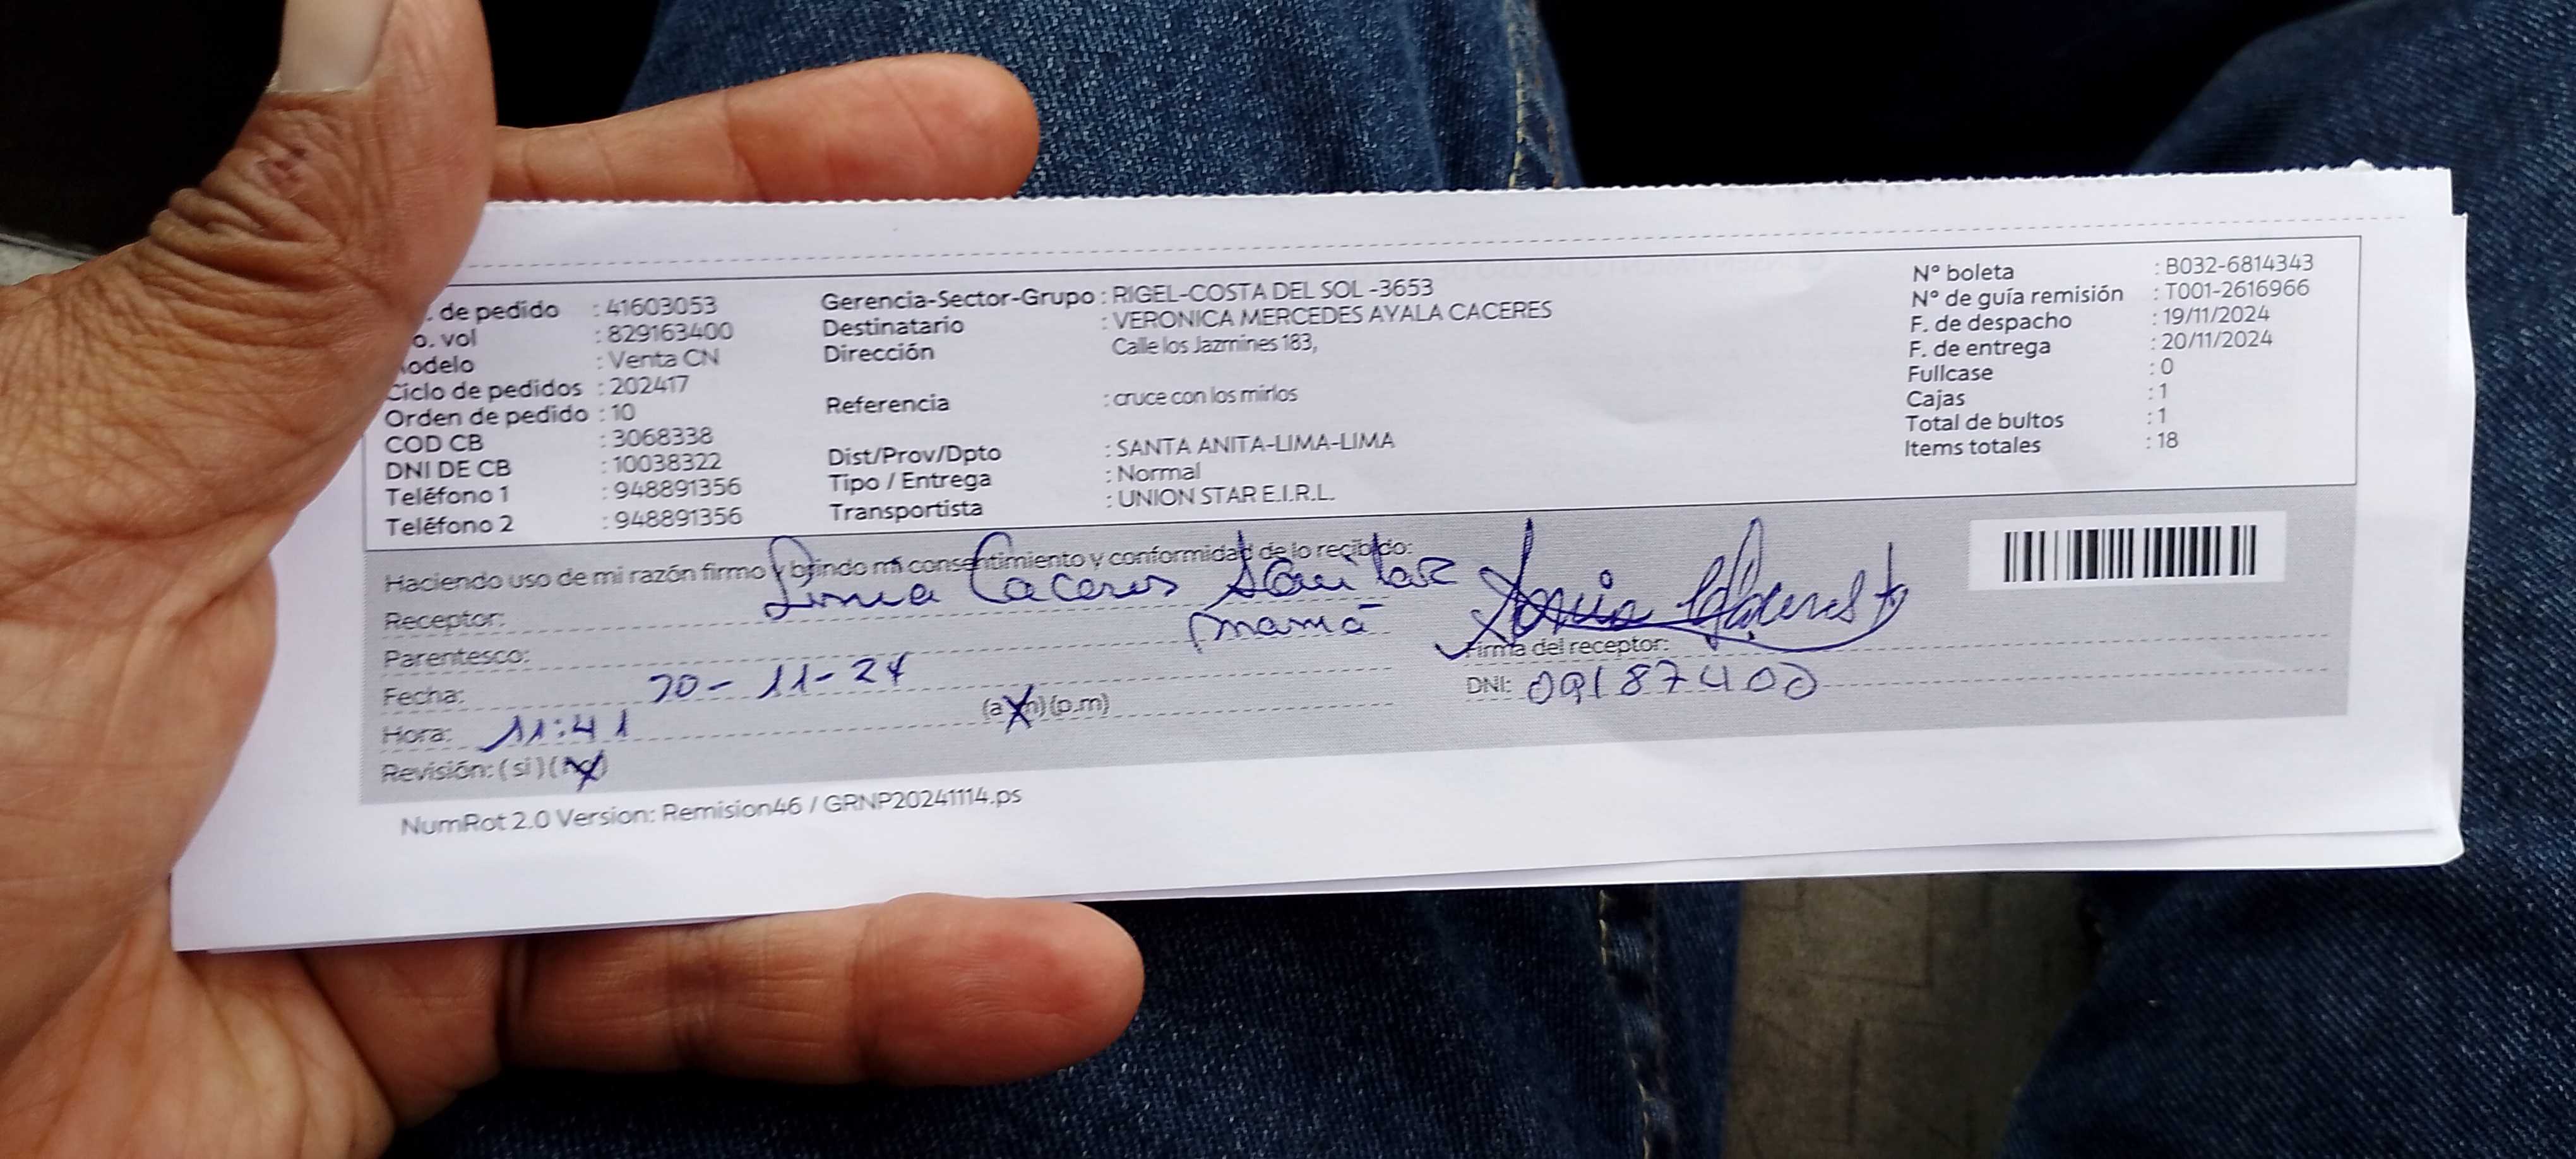 . de pedido : 41603053
o. vol : 829163400
odelo : Venta CN
Ciclo de pedidos : 202417
Orden de pedido : 10
COD CB : 3068338
DNI DE CB : 10038322
Teléfono 1 : 948891356
Teléfono 2 : 948891356
Gerencia-Sector-Grupo : RIGEL-COSTA DEL SOL -3653
Destinatario : VERONICA MERCEDES AYALA CACERES
Dirección Calle los Jazmines 183,
Referencia : cruce con los mirlos
Dist/Prov/Dpto : SANTA ANITA-LIMA-LIMA
Tipo / Entrega : Normal
Transportista : UNION STAR E.I.R.L.
N° boleta : B032-6814343
N° de guía remisión : T001-2616966
F. de despacho : 19/11/2024
F. de entrega : 20/11/2024
Fullcase : 0
Cajas : 1
Total de bultos : 1
Items totales : 18
Haciendo uso de mi razón firmo y brindo mi consentimiento y conformidad de lo recibido:
Receptor: Caceres
Parentesco: mamá
Fecha: 20-11-24
Hora: 11:41 (a.m) (p.m)
Revisión: (si) (no)
Firma del receptor:
DNI: 09187400
NumRot 2.0 Version: Remision46 / GRNP20241114.ps